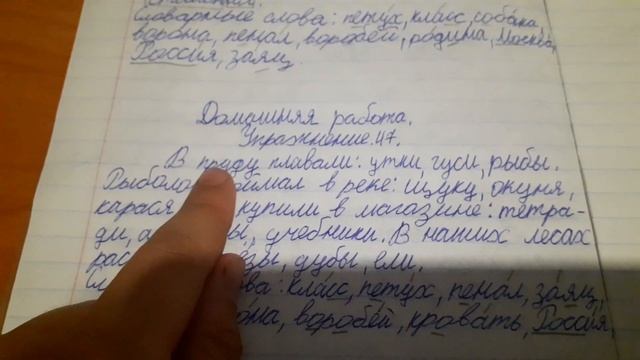 Словарные слова: петух, класс, собака
ворона, пенал, воробей, родина, Москва,
Россия, заяц.
Домашняя работа.
Упражнение 47.
В пруду плавали: утки, гуси, рыбы.
в реке: щуку, окуня,
карася купили в магазине: тетра-
ди, учебники. В наших лесах
дубы, ели.
класс, петух, пенал, заяц,
воробей, кровать, Россия